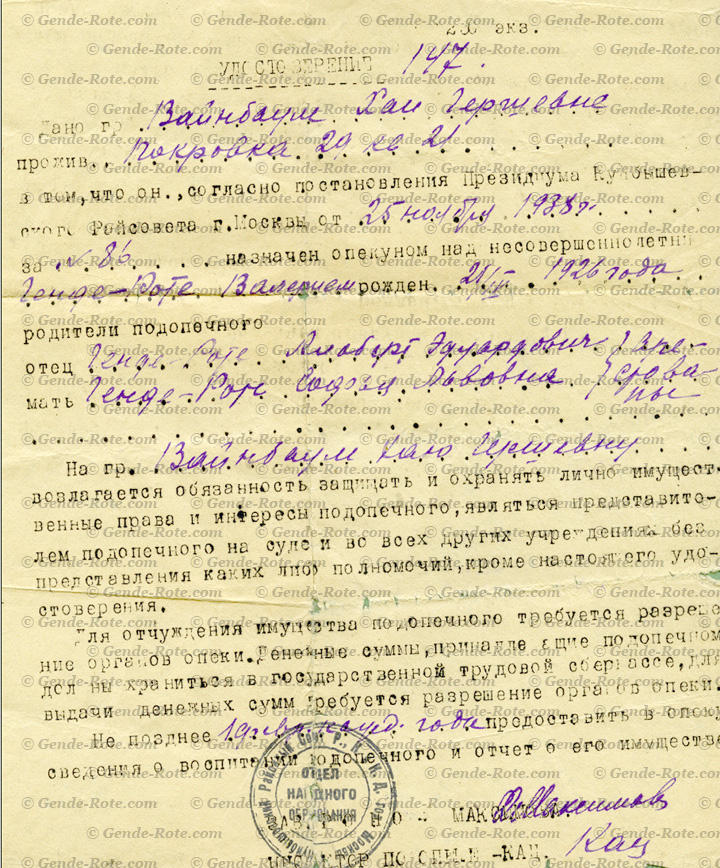 2 экз.
УДОСТОВЕРЕНИЕ 147.
Дано гр. Вайнбаум Хае Гершевне
прожив.. Покровка 29 кв 21
в том,что он.,согласно постановления Президиума Куйбышев-
ского Райсовета г.Москвы от 25 ноября 1938 г.
за № 86 назначен опекуном над несовершеннолетни
Генде-Роте Валерием рожден. 1926 года
родители подопечного
отец Генде-Роте Альберт Эдуардович } Аре-
мать Генде-Роте София Львовна } стова-
ны
На гр. Вайнбаум Хаю Гершевну
возлагается обязанность защищать и охранять лично имущест-
венные права и интересы подопечного,являться представите-
лем подопечного на суде и во всех других учреждениях без
представления каких либо полномочий,кроме настоящего удо-
стоверения.
Для отчуждения имущества подопечного требуется разреше
ние органов опеки.Денежные суммы,принадлежащие подопечном
должны храниться в государственной трудовой сберкассе,для
выдачи денежных сумм требуется разрешение органов опеки.
Не позднее 1 янв. кажд. года предоставить в опеку
сведения о воспитании подопечного и отчет о его имуществе
ОТДЕЛ
НАРОДНОГО
ОБРАЗОВАНИЯ
Максимов
ИНСПЕКТОР ПО ОПЕКЕ -КАЦ. Кац
© Gende-Rote.com